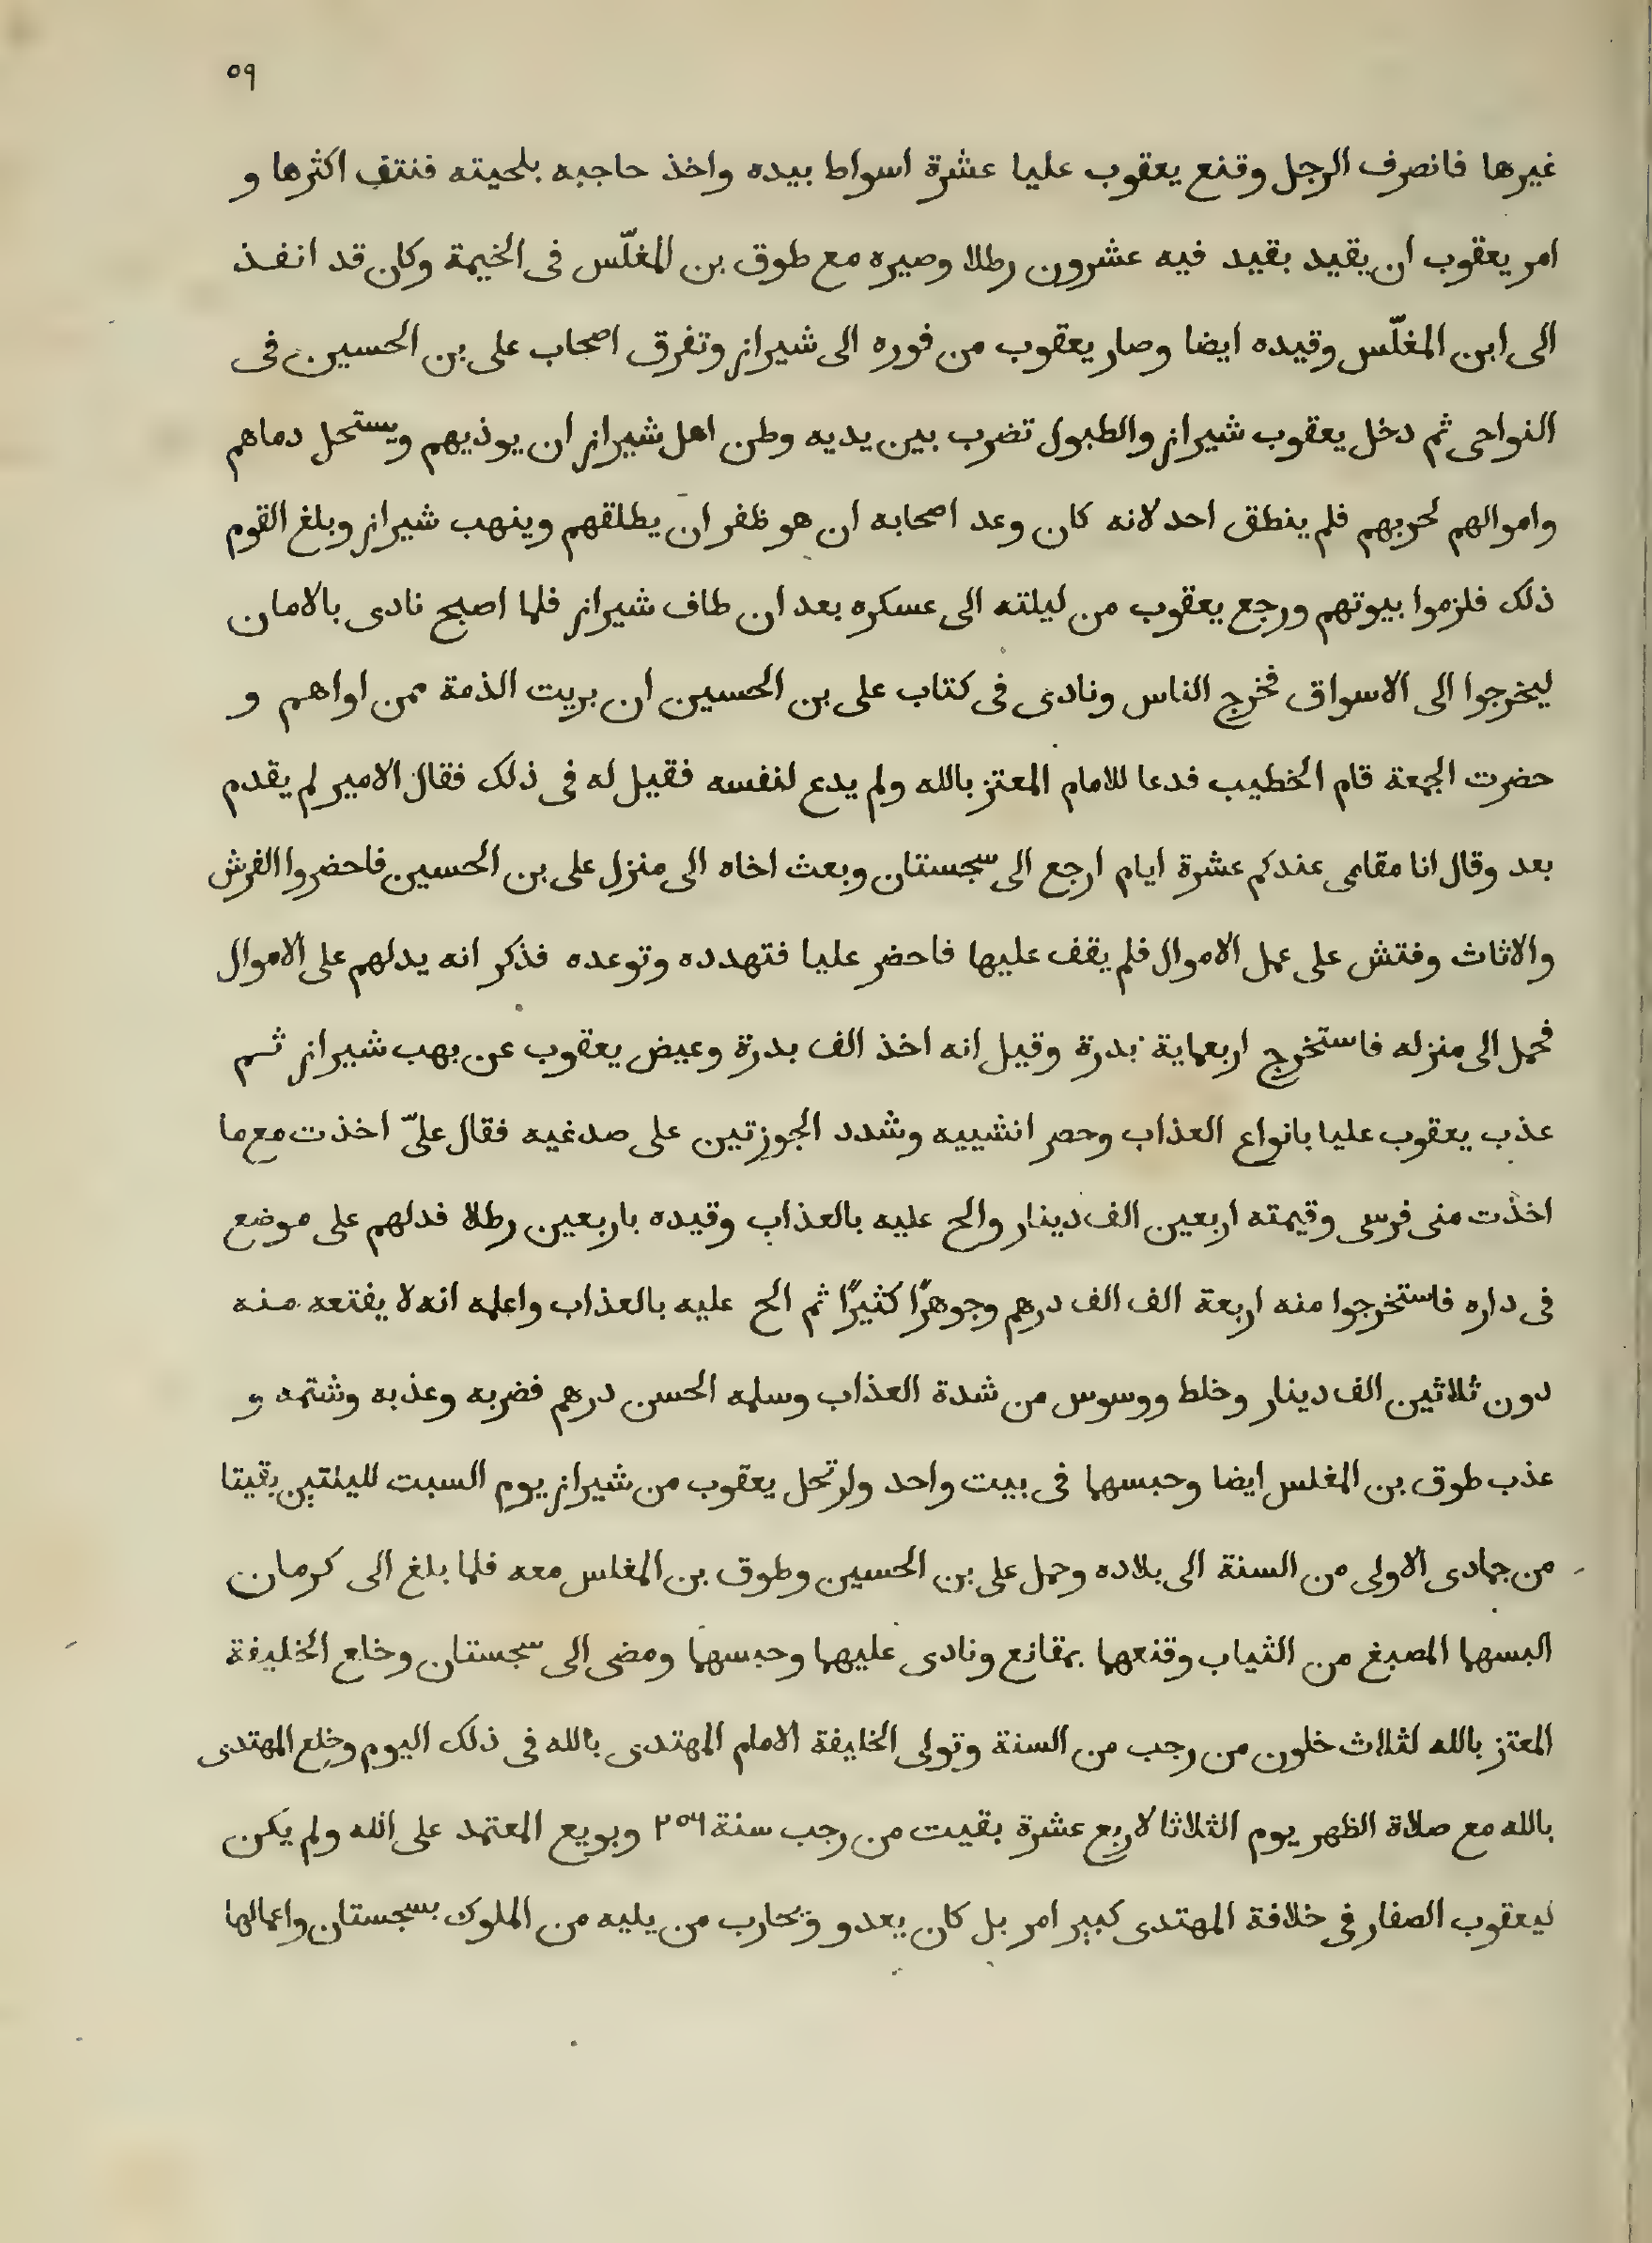 ٥٩
غيرها فانصرف الرجل وقنع يعقوب عليا عشرة اسواط بيده واخذ حاجبه بلحيته فنتف اكثرها و
امر يعقوب ان يقيد بقيد فيه عشرون رطلا وصيره مع طوق بن المغلّس فى الخيمة وكان قد انفذ
الى ابن المغلّس وقيده ايضا وصار يعقوب من فوره الى شيراز وتفرق اصحاب على بن الحسين فى
النواحى ثم دخل يعقوب شيراز والطبول تضرب بين يديه وظن اهل شيراز ان يوذيهم ويستحل دماهم
واموالهم لحربهم فلم ينطق احد لانه كان وعد اصحابه ان هو ظفر ان يطلقهم وينهب شيراز وبلغ القوم
ذلك فلزموا بيوتهم ورجع يعقوب من ليلته الى عسكره بعد ان طاف شيراز فلما اصبح نادى بالامان
ليخرجوا الى الاسواق فخرج الناس ونادى فى كتاب على بن الحسين ان بريت الذمة ممن اواهم و
حضرت الجمعة قام الخطيب فدعا للامام المعتز بالله ولم يدع لنفسه فقيل له فى ذلك فقال الامير لم يقدم
بعد وقال انا مقامى عندكم عشرة ايام ارجع الى سجستان وبعث اخاه الى منزل على بن الحسين فاحضروا الفرش
والاثاث وفتش على عمل الاموال فلم يقف عليها فاحضر عليا فتهدده وتوعده فذكر انه يدلهم على الاموال
فحمل الى منزله فاستخرج اربعماية بدرة وقيل انه اخذ الف بدرة وعيض يعقوب عن بهب شيراز ثم
عذب يعقوب عليا بانواع العذاب وحصر انشييه وشدد الجوزتين على صدغيه فقال علىّ اخذت مع ما
اخذت منى فرسى وقيمته اربعين الف دينار والح عليه بالعذاب وقيده باربعين رطلا فدلهم على موضع
فى داره فاستخرجوا منه اربعة الف الف درهم وجوهرًا كثيرًا ثم الح عليه بالعذاب واعلمه انه لا يفتعه منه
دون ثلاثين الف دينار وخلط ووسوس من شدة العذاب وسلمه الحسن درهم فضربه وعذبه وشتمه و
عذب طوق بن المغلس ايضا وحبسهما فى بيت واحد وارتحل يعقوب من شيراز يوم السبت لليلتين بقيتا
من جمادى الاولى من السنة الى بلاده وحمل على بن الحسين وطوق بن المغلس معه فلما بلغ الى كرمان
البسهما المصبغ من الثياب وقنعهما بمقانع ونادى عليهما وحبسهما ومضى الى سجستان وخلع الخليفة
المعتز بالله لثلاث خلون من رجب من السنة وتولى الخليفة الامام المهتدى بالله فى ذلك اليوم وخلع المهتدى
بالله مع صلاة الظهر يوم الثلاثا لاربع عشرة بقيت من رجب سنة ٢٥٦ وبويع المعتمد على الله ولم يكن
ليعقوب الصفار فى خلافة المهتدى كبير امر بل كان يعدو ويحارب من يليه من الملوك بسجستان واعمالها